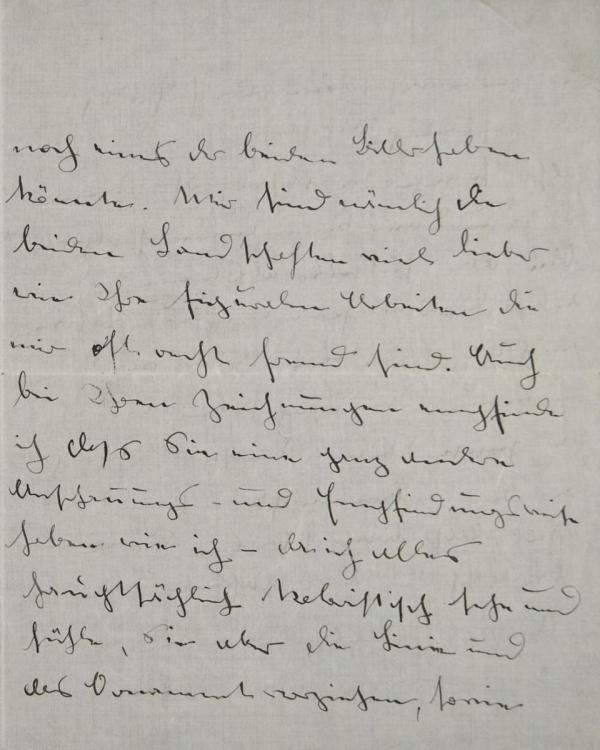 noch eines der beiden Bilder haben
könnte. Mir sind nämlich die
beiden Landschaften viel lieber
wie Ihre figuralen Arbeiten die
mir oft recht fremd sind. Auch
bei Ihren Zeichnungen empfinde
ich daß Sie eine ganz andere
Anschauungs- und Empfindungsweise
haben wie ich – da ich alles
hauptsächlich malerisch sehe und
fühle, Sie aber die Linie und
das Ornament vorziehen, sowie